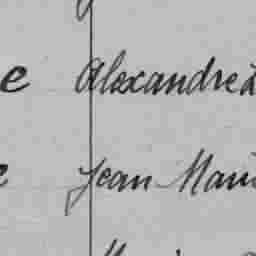 e Alexandre à
e Jean Mari